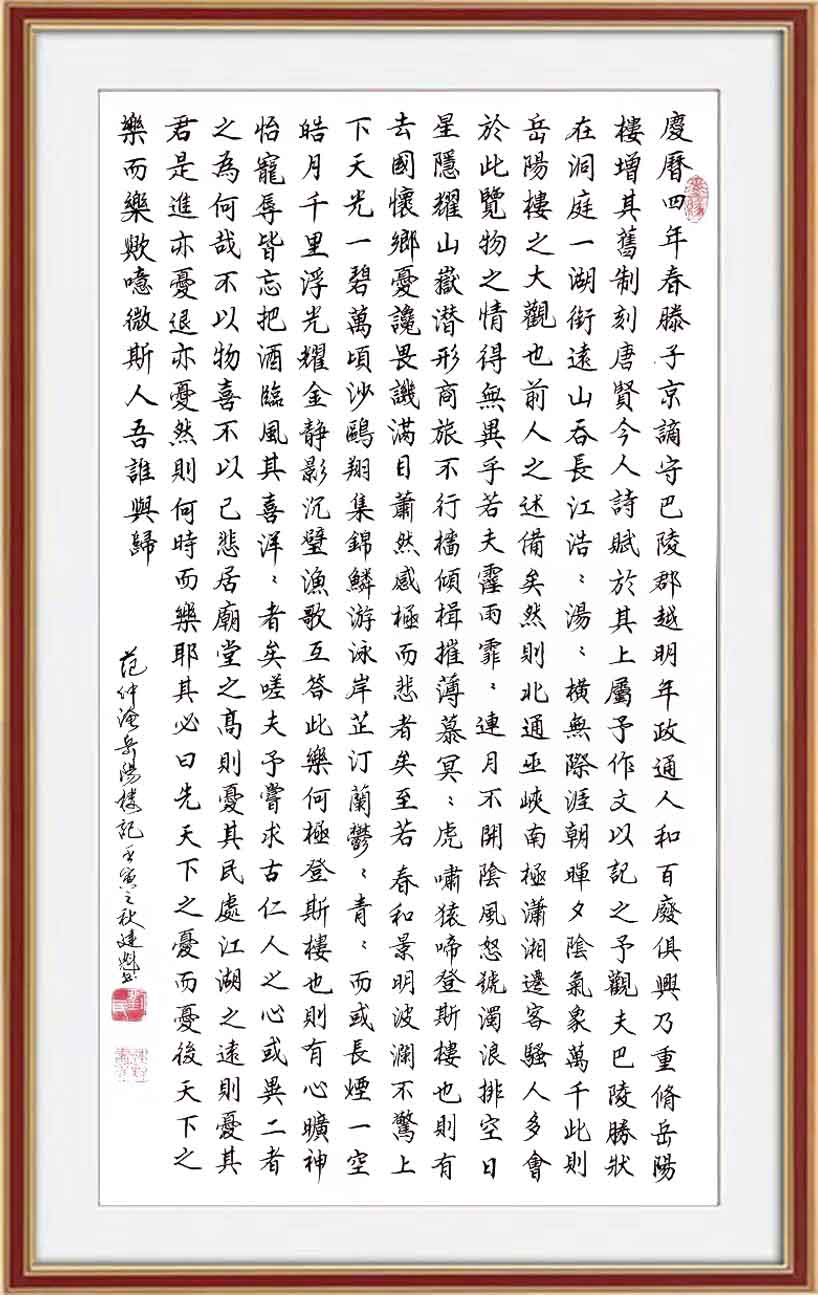 慶曆四年春滕子京謫守巴陵郡越明年政通人和百廢俱興乃重脩岳陽
樓增其舊制刻唐賢今人詩賦於其上屬予作文以記之予觀夫巴陵勝狀
在洞庭一湖銜遠山吞長江浩〻湯〻橫無際涯朝暉夕陰氣象萬千此則
岳陽樓之大觀也前人之述備矣然則北通巫峽南極瀟湘遷客騷人多會
於此覽物之情得無異乎若夫霪雨霏〻連月不開陰風怒號濁浪排空日
星隱耀山嶽潛形商旅不行檣傾楫摧薄暮冥〻虎嘯猿啼登斯樓也則有
去國懷鄉憂讒畏譏滿目蕭然感極而悲者矣至若春和景明波瀾不驚上
下天光一碧萬頃沙鷗翔集錦鱗游泳岸芷汀蘭鬱〻青〻而或長煙一空
皓月千里浮光耀金靜影沉璧漁歌互答此樂何極登斯樓也則有心曠神
怡寵辱皆忘把酒臨風其喜洋〻者矣嗟夫予嘗求古仁人之心或異二者
之為何哉不以物喜不以己悲居廟堂之高則憂其民處江湖之遠則憂其
君是進亦憂退亦憂然則何時而樂耶其必曰先天下之憂而憂後天下之
樂而樂歟噫微斯人吾誰與歸
范仲淹岳陽樓記 壬寅之秋建書